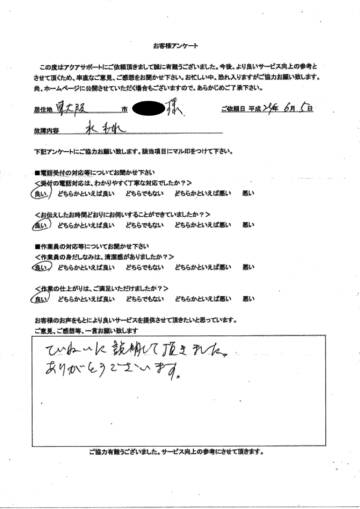 お客様アンケート
この度はアクアサポートにご依頼頂きまして誠に有難うございました。今後、より良いサービス向上の参考と
させて頂くため、率直なご意見、ご感想をお聞かせ下さい。お忙しい中、恐れ入りますがご協力お願い致します。
尚、ホームページに公開させていただく場合もございますので、あらかじめご了承下さい。
居住地 東大阪 市 様 ご依頼日 平成24年6月5日
故障内容 水もれ
下記アンケートにご協力お願い致します。該当項目にマル印をつけて下さい。
■電話受付の対応等についてお聞かせ下さい
<受付の電話対応は、わかりやすく丁寧な対応でしたか?>
良い どちらかといえば良い どちらでもない どちらかといえば悪い 悪い
<お伝えしたお時間どおりにお伺いすることができていましたか?>
良い どちらかといえば良い どちらでもない どちらかといえば悪い 悪い
■作業員の対応等についてお聞かせ下さい
<作業員の身だしなみは、清潔感がありましたか?>
良い どちらかといえば良い どちらでもない どちらかといえば悪い 悪い
<作業の仕上がりは、ご満足いただけましたか?>
良い どちらかといえば良い どちらでもない どちらかといえば悪い 悪い
お客様のお声をもとにより良いサービスを提供させて頂きたいと思っています。
ご意見、ご感想等、一言お願い致します
ていねいに説明して頂きました。
ありがとうございます。
ご協力有難うございました。サービス向上の参考にさせて頂きます。